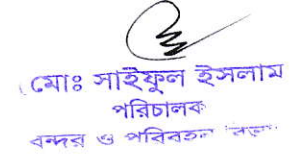 মোঃ সাইফুল ইসলাম
পরিচালক
বন্দর ও পরিবহন